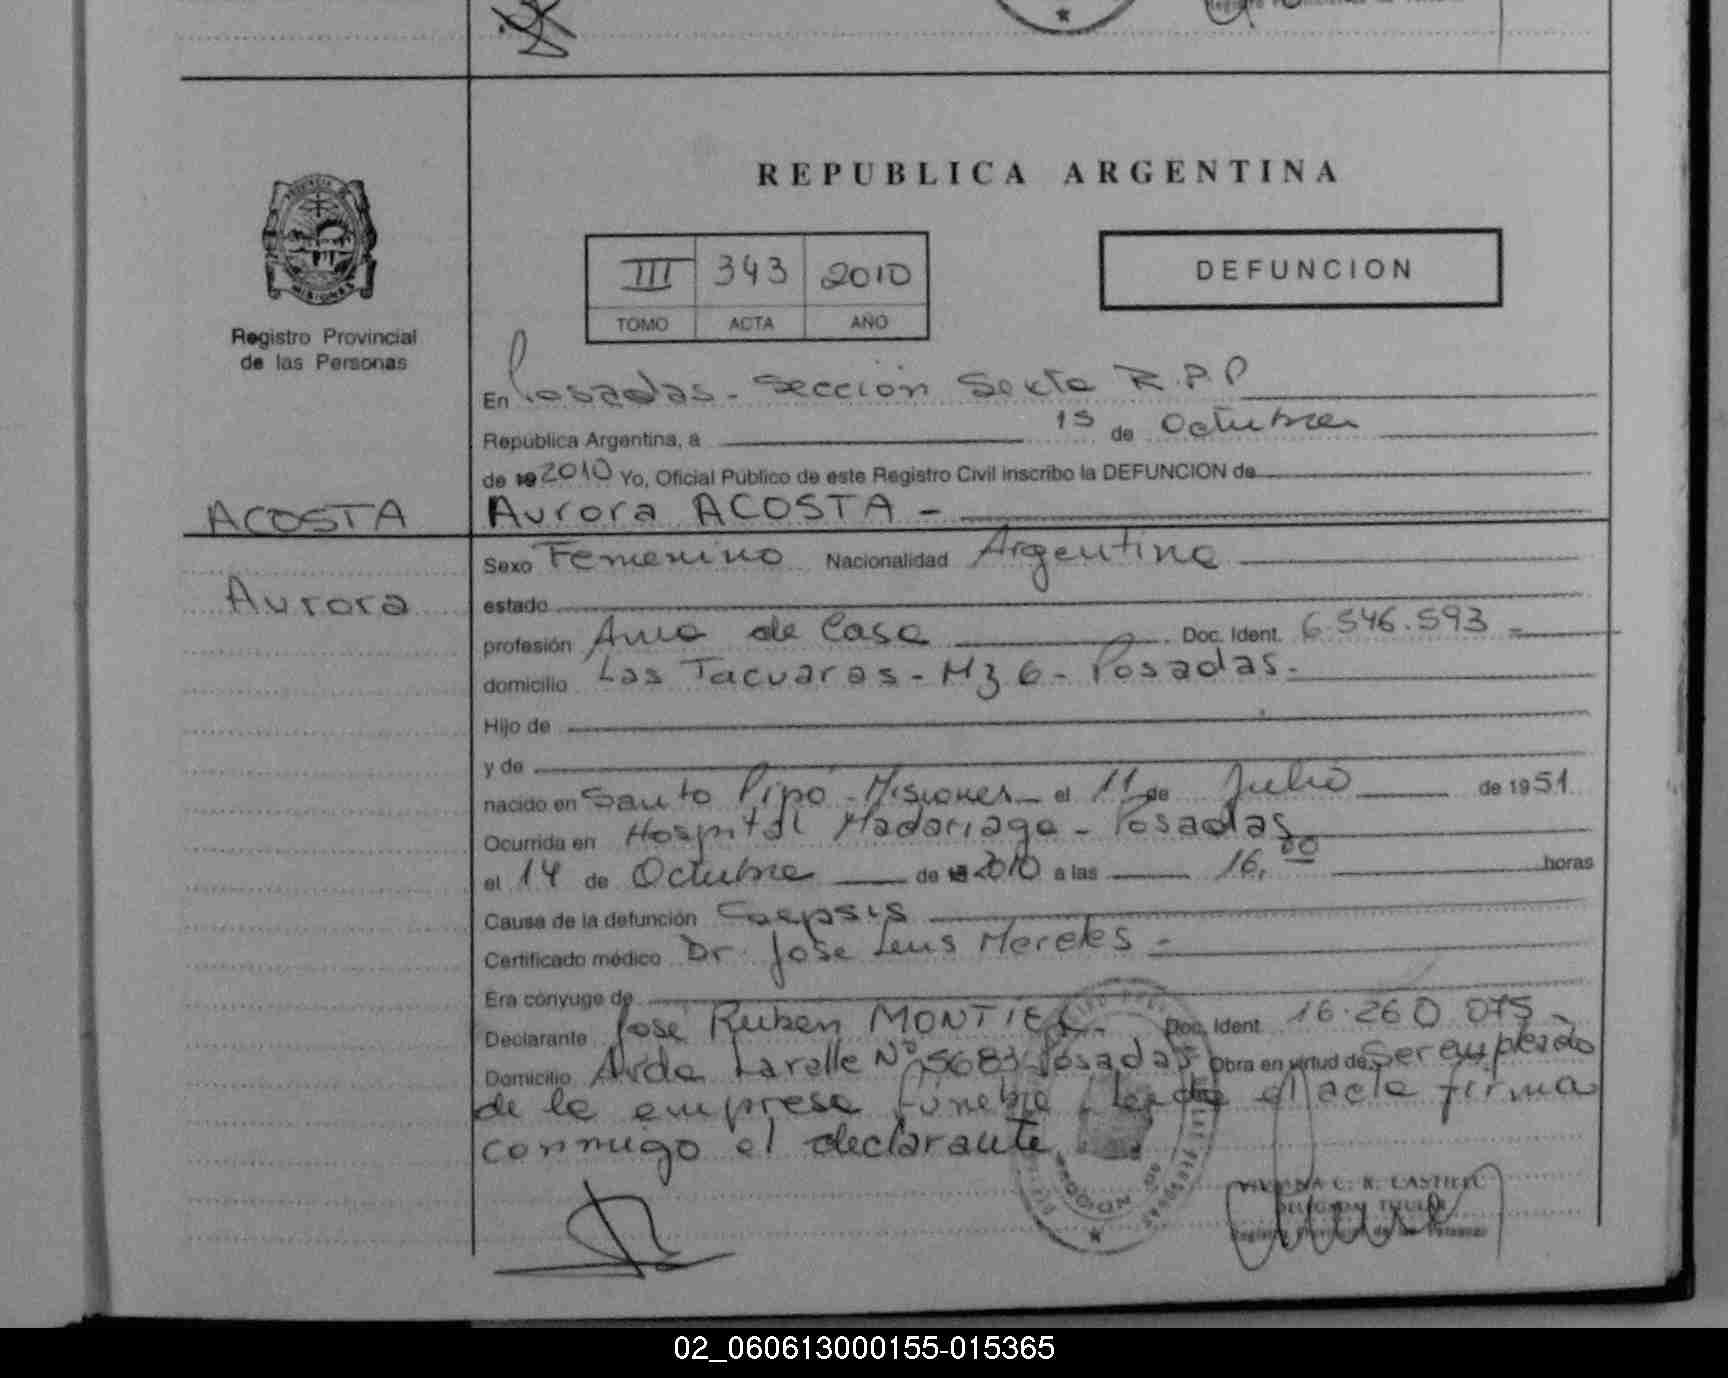 REPUBLICA ARGENTINA
III 343 2010
TOMO ACTA AÑO
DEFUNCION
MISIONES
Registro Provincial
de las Personas
En Posadas - Sección Sexta R.P.P
República Argentina, a 15 de Octubre
de 19 2010 Yo, Oficial Público de este Registro Civil inscribo la DEFUNCION de
ACOSTA
Aurora ACOSTA -
Aurora
Sexo Femenino Nacionalidad Argentina
estado
profesión Ama de Casa Doc. Ident. 6.546.593 -
domicilio Las Tacuaras - Mz 6 - Posadas -
Hijo de
y de
nacido en Santo Pipó - Misiones - el 11 de Julio de 1951
Ocurrida en Hospital Madariaga - Posadas
el 14 de Octubre de 19 2010 a las 16,00 horas
Causa de la defunción Saepsis
Certificado médico Dr. José Luis Mereles -
Era cónyuge de
Declarante José Ruben MONTIEL - Doc. Ident. 16.260.075 -
Domicilio Avda Lavalle Nº 5683 Posadas Obra en virtud de Ser empleado
de la empresa funebre, leida el acta firma
conmigo el declarante
C. R. CASTILLO
DELEGADA TITULAR
Registro Provincial de las Personas
02_060613000155-015365